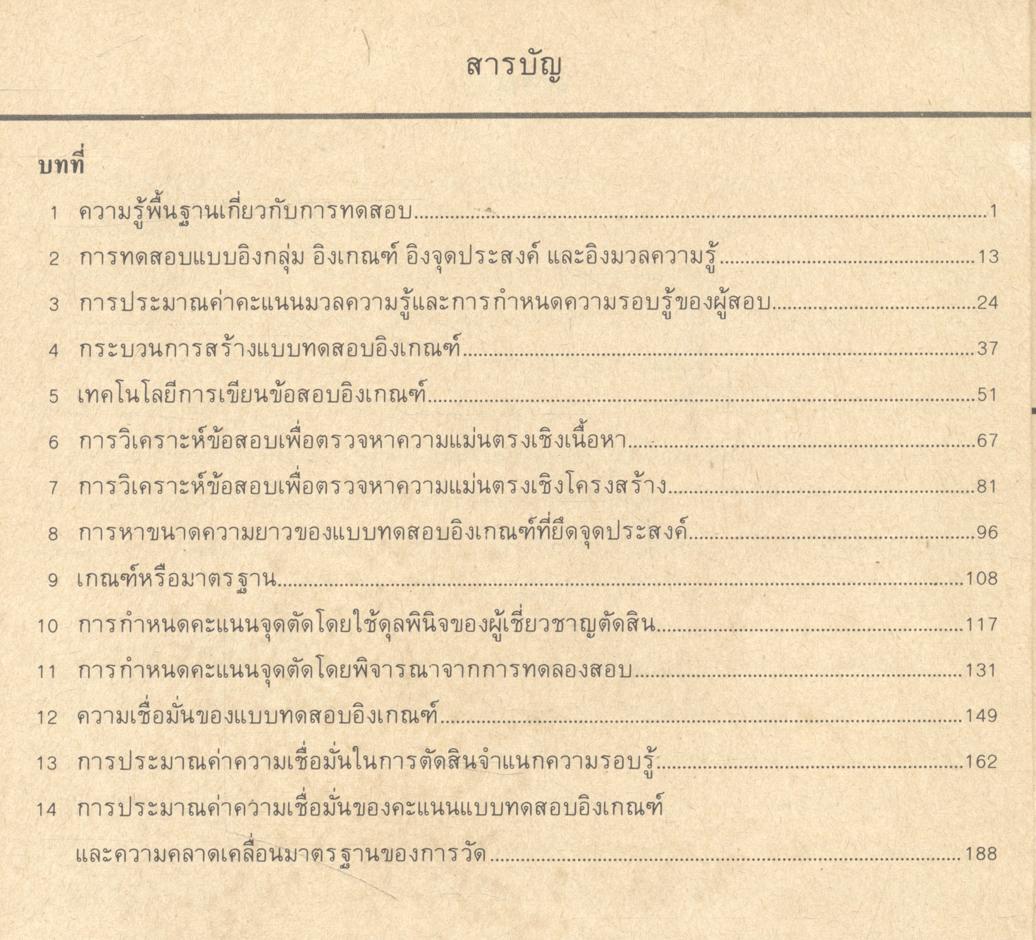 สารบัญ
บทที่
1 ความรู้พื้นฐานเกี่ยวกับการทดสอบ....................1
2 การทดสอบแบบอิงกลุ่ม อิงเกณฑ์ อิงจุดประสงค์ และอิงมวลความรู้....................13
3 การประมาณค่าคะแนนมวลความรู้และการกำหนดความรอบรู้ของผู้สอบ....................24
4 กระบวนการสร้างแบบทดสอบอิงเกณฑ์....................37
5 เทคโนโลยีการเขียนข้อสอบอิงเกณฑ์....................51
6 การวิเคราะห์ข้อสอบเพื่อตรวจหาความแม่นตรงเชิงเนื้อหา....................67
7 การวิเคราะห์ข้อสอบเพื่อตรวจหาความแม่นตรงเชิงโครงสร้าง....................81
8 การหาขนาดความยาวของแบบทดสอบอิงเกณฑ์ที่ยึดจุดประสงค์....................96
9 เกณฑ์หรือมาตรฐาน....................108
10 การกำหนดคะแนนจุดตัดโดยใช้ดุลพินิจของผู้เชี่ยวชาญตัดสิน....................117
11 การกำหนดคะแนนจุดตัดโดยพิจารณาจากการทดลองสอบ....................131
12 ความเชื่อมั่นของแบบทดสอบอิงเกณฑ์....................149
13 การประมาณค่าความเชื่อมั่นในการตัดสินจำแนกความรอบรู้....................162
14 การประมาณค่าความเชื่อมั่นของคะแนนแบบทดสอบอิงเกณฑ์
และความคลาดเคลื่อนมาตรฐานของการวัด....................188